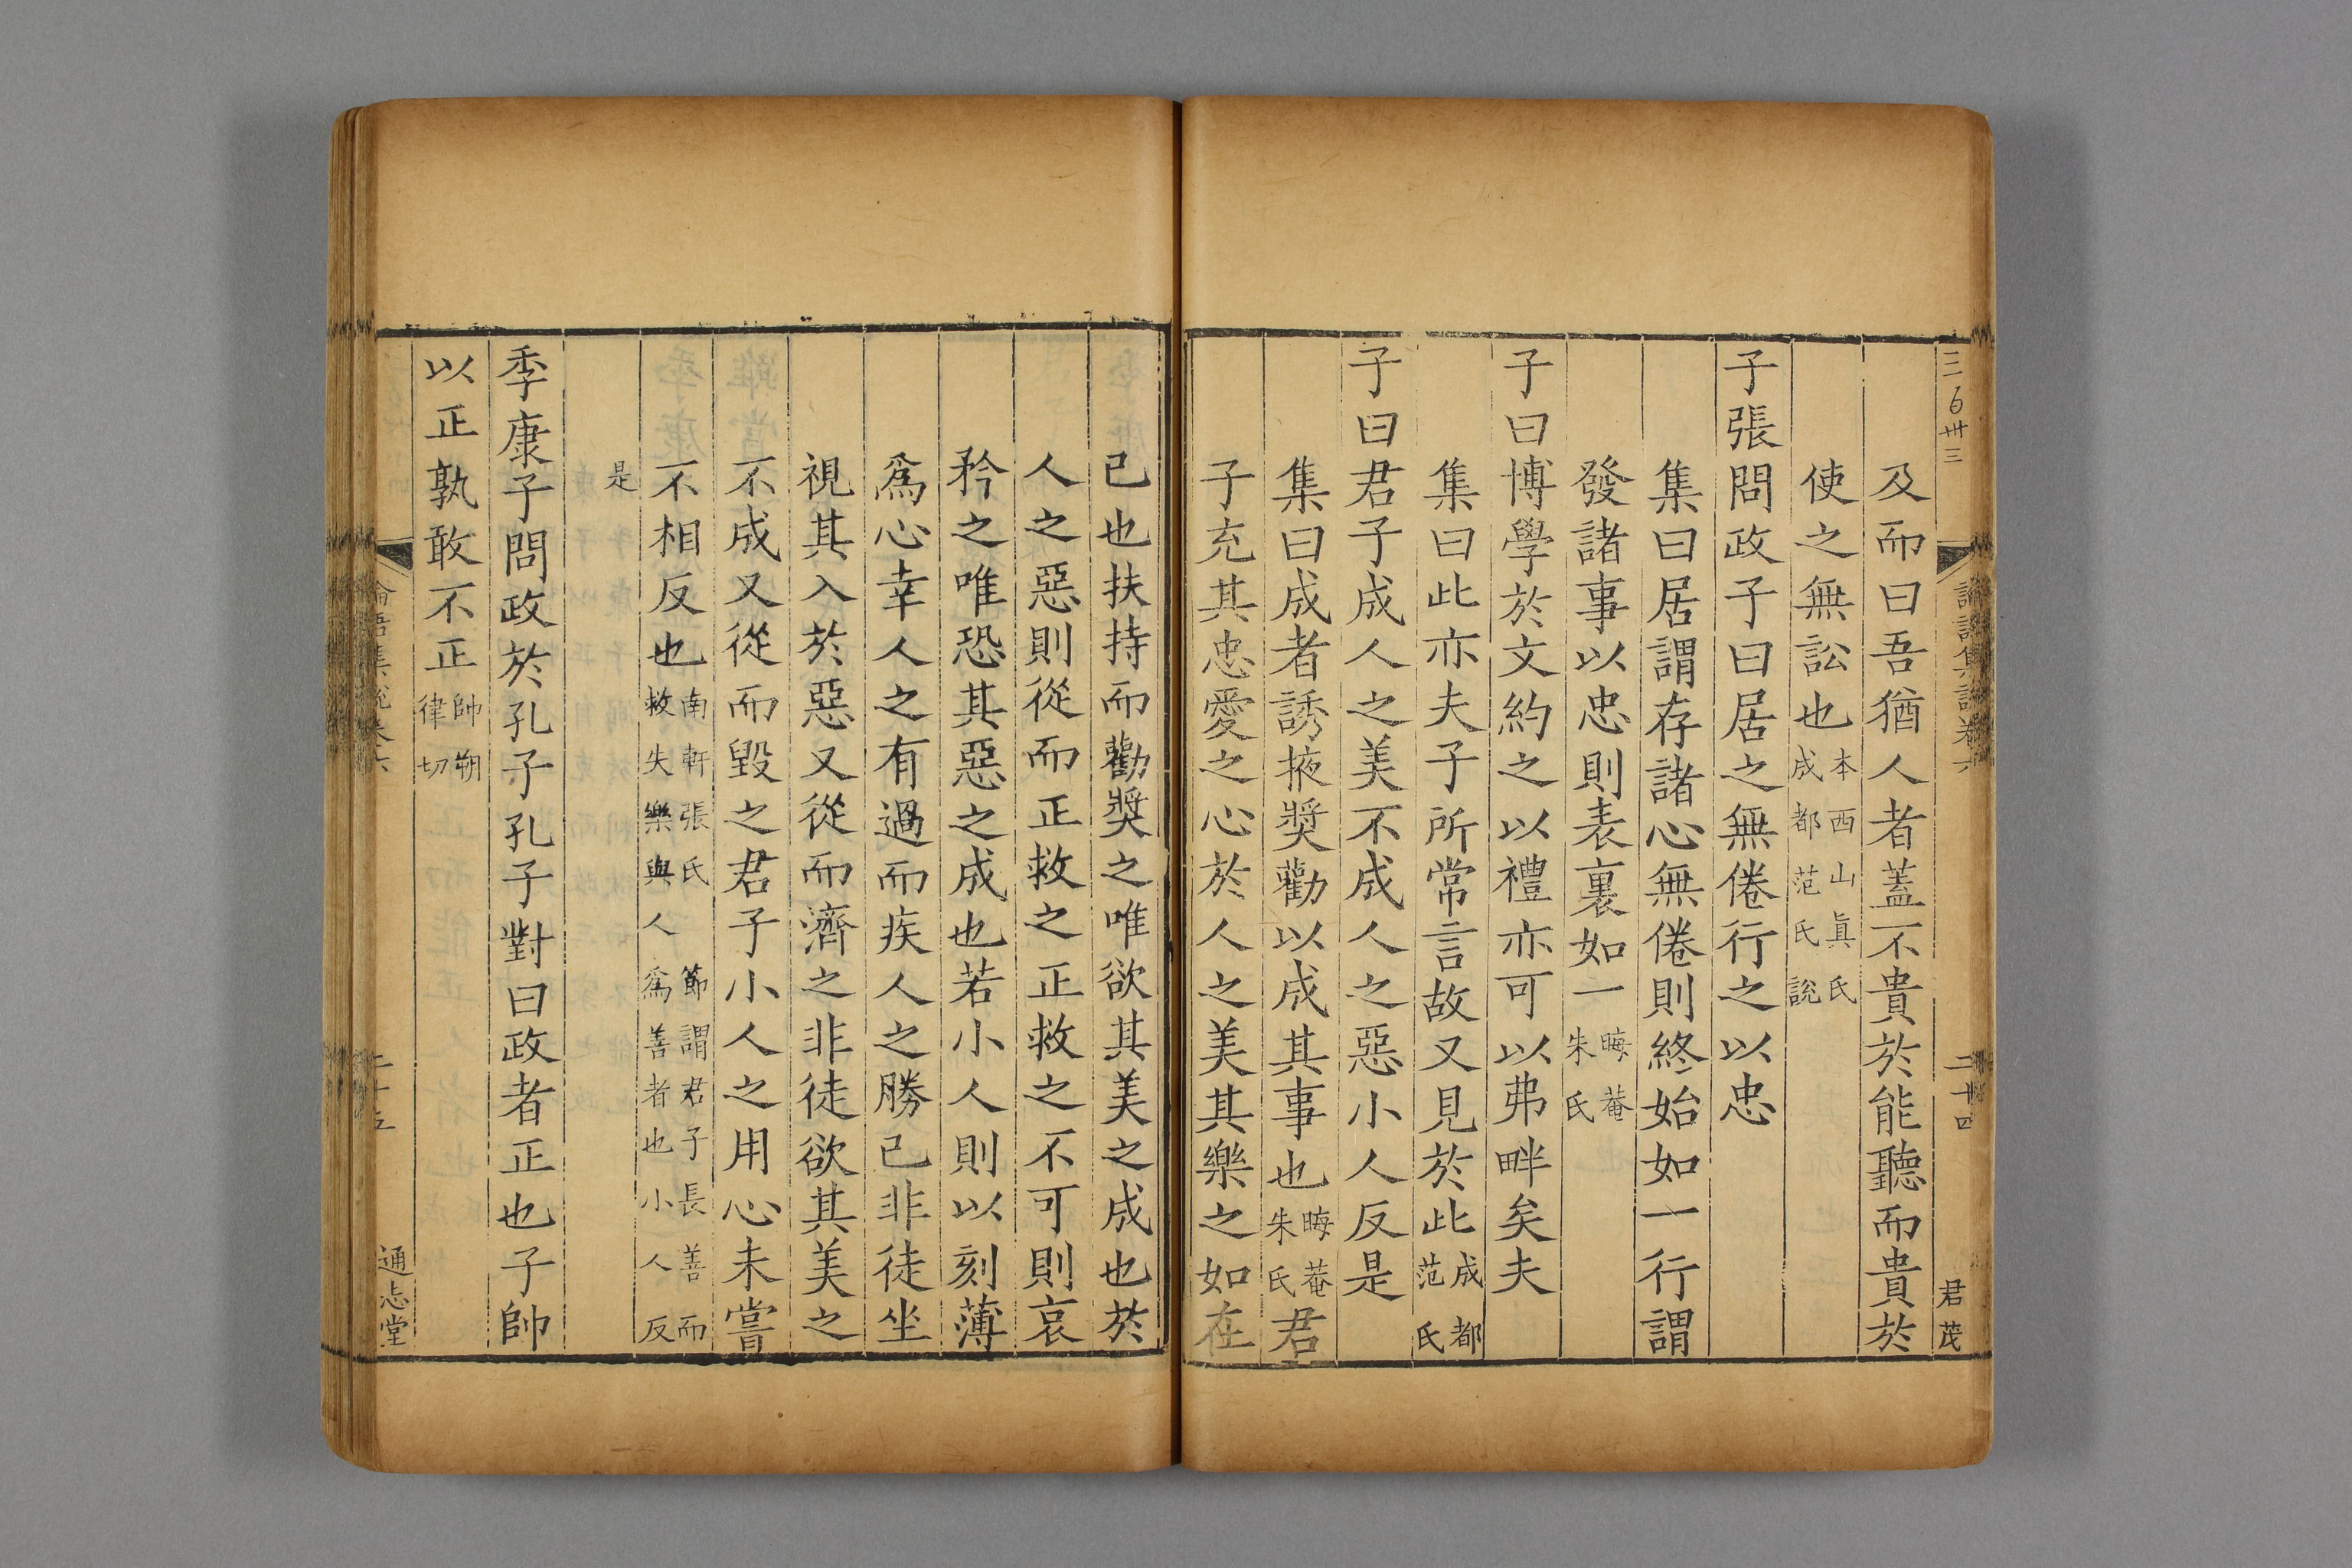 三百卅三
論語集說卷六
二十四
君茂
及而曰吾猶人者蓋不貴於能聽而貴於
使之無訟也本西山眞氏成都范氏說
子張問政子曰居之無倦行之以忠
集曰居謂存諸心無倦則終始如一行謂
發諸事以忠則表裏如一晦菴朱氏
子曰博學於文約之以禮亦可以弗畔矣夫
集曰此亦夫子所常言故又見於此成都范氏
子曰君子成人之美不成人之惡小人反是
集曰成者誘掖奬勸以成其事也晦菴朱氏君
子充其忠愛之心於人之美其樂之如在
己也扶持而勸奬之唯欲其美之成也於
人之惡則從而正救之正救之不可則哀
矜之唯恐其惡之成也若小人則以刻薄
爲心幸人之有過而疾人之勝己非徒坐
視其入於惡又從而濟之非徒欲其美之
不成又從而毀之君子小人之用心未嘗
不相反也南軒張氏 節謂君子長善而救失樂與人爲善者也小人反
是
季康子問政於孔子孔子對曰政者正也子帥
以正孰敢不正帥朔律切
論語集說卷六
二十五
通志堂